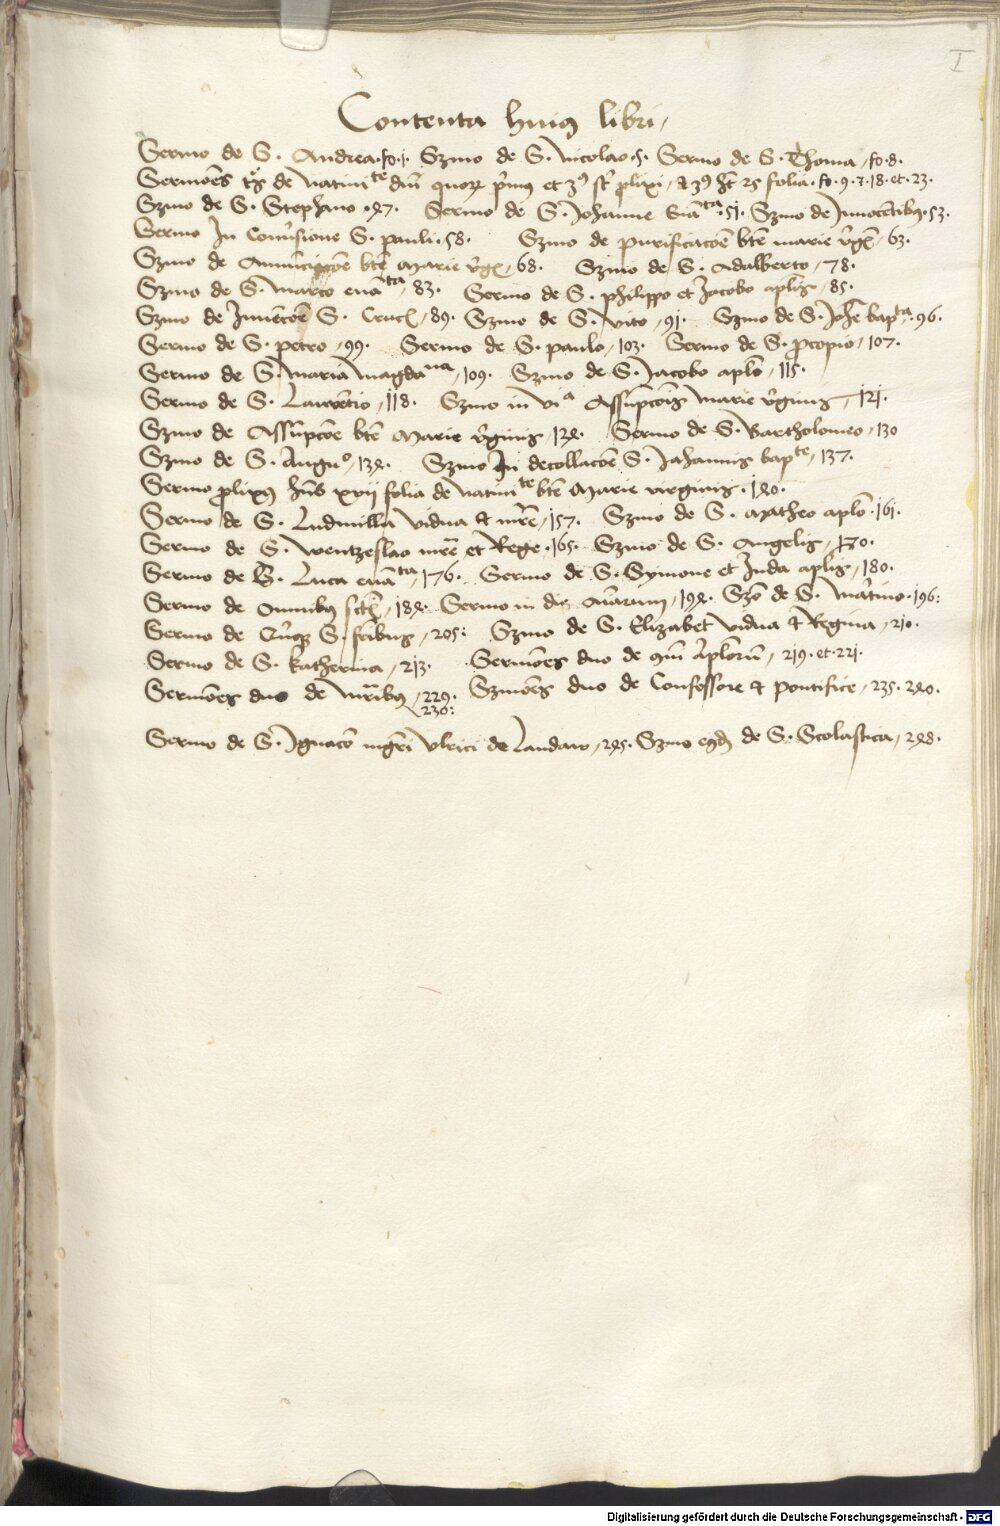 I
Contenta huiꝰ libri
Sermo de S. Andrea. fo. j. Sermo de S. Nicolao. 5. Sermo de S. Thoma, fo. 8.
Sermões tres de Natiuite dñi quorꝝ primꝰ et 3ꝰ st prolixi, et 3ꝰ ht 25 folia. fo. 9. 18. et. 23.
Sermo de S. Stephano. 47. Sermo de S. Johanne Euãta. 51. Sermo de Innocẽtibꝰ. 53.
Sermo In Conuersione S. pauli. 58. Sermo de purificacõe btẽ marie vgĩs, 63.
Sermo de Annũciacõe btẽ Marie vgĩs, 68. Sermo de S. Adalberto, 78.
Sermo de S. Marco euãta, 83. Sermo de S. philippo et Jacobo aplis, 85.
Sermo de Inuẽcõe S. Crucis, 89. Sermo de S. Vito, 91. Sermo de S. Johẽ bapta. 96.
Sermo de S. petro, 99. Sermo de S. paulo, 103. Sermo de S. procopio, 107.
Sermo de S. Maria Magdana, 109. Sermo de S. Jacobo aplo, 115.
Sermo de S. Laurẽtio, 118. Sermo in via Assũpcõis Marie vginis, 121.
Sermo de Assũpcõe btẽ Marie vginis, 124. Sermo de S. Bartholomeo, 130
Sermo de S. Auguo, 134. Sermo In decollacõe S. Johannis bapte, 137.
Sermo prolixꝰ hñs xvij folia de Natiuite btẽ Marie virginis. 140.
Sermo de S. Ludmilla vidua et mre, 157. Sermo de S. Matheo aplo. 161.
Sermo de S. Wentzeslao mre et Rege. 165. Sermo de S. Angelis, 170.
Sermo de S. Luca euãta, 176. Sermo de S. Symone et Juda aplis, 180.
Sermo de Omnibꝰ sctis, 184. Sermo in die aĩarum, 194. Sermo de S. Martino. 196:
Sermo de Quinqꝫ S. fribus, 205: Sermo de S. Elizabet vidua et Regina, 210.
Sermo de S. Katherina, 213. Sermões duo de aplorũ, 219. et. 221.
Sermões duo de Mribꝰ, 229. Sermões duo de Confessore et pontifice, 235. 240.
230:
Sermo de S. Ignacõ mgri Vlrici de Landaw, 245. Sermo eiusdem de S. Scolastica, 248.
Digitalisierung gefördert durch die Deutsche Forschungsgemeinschaft - DFG